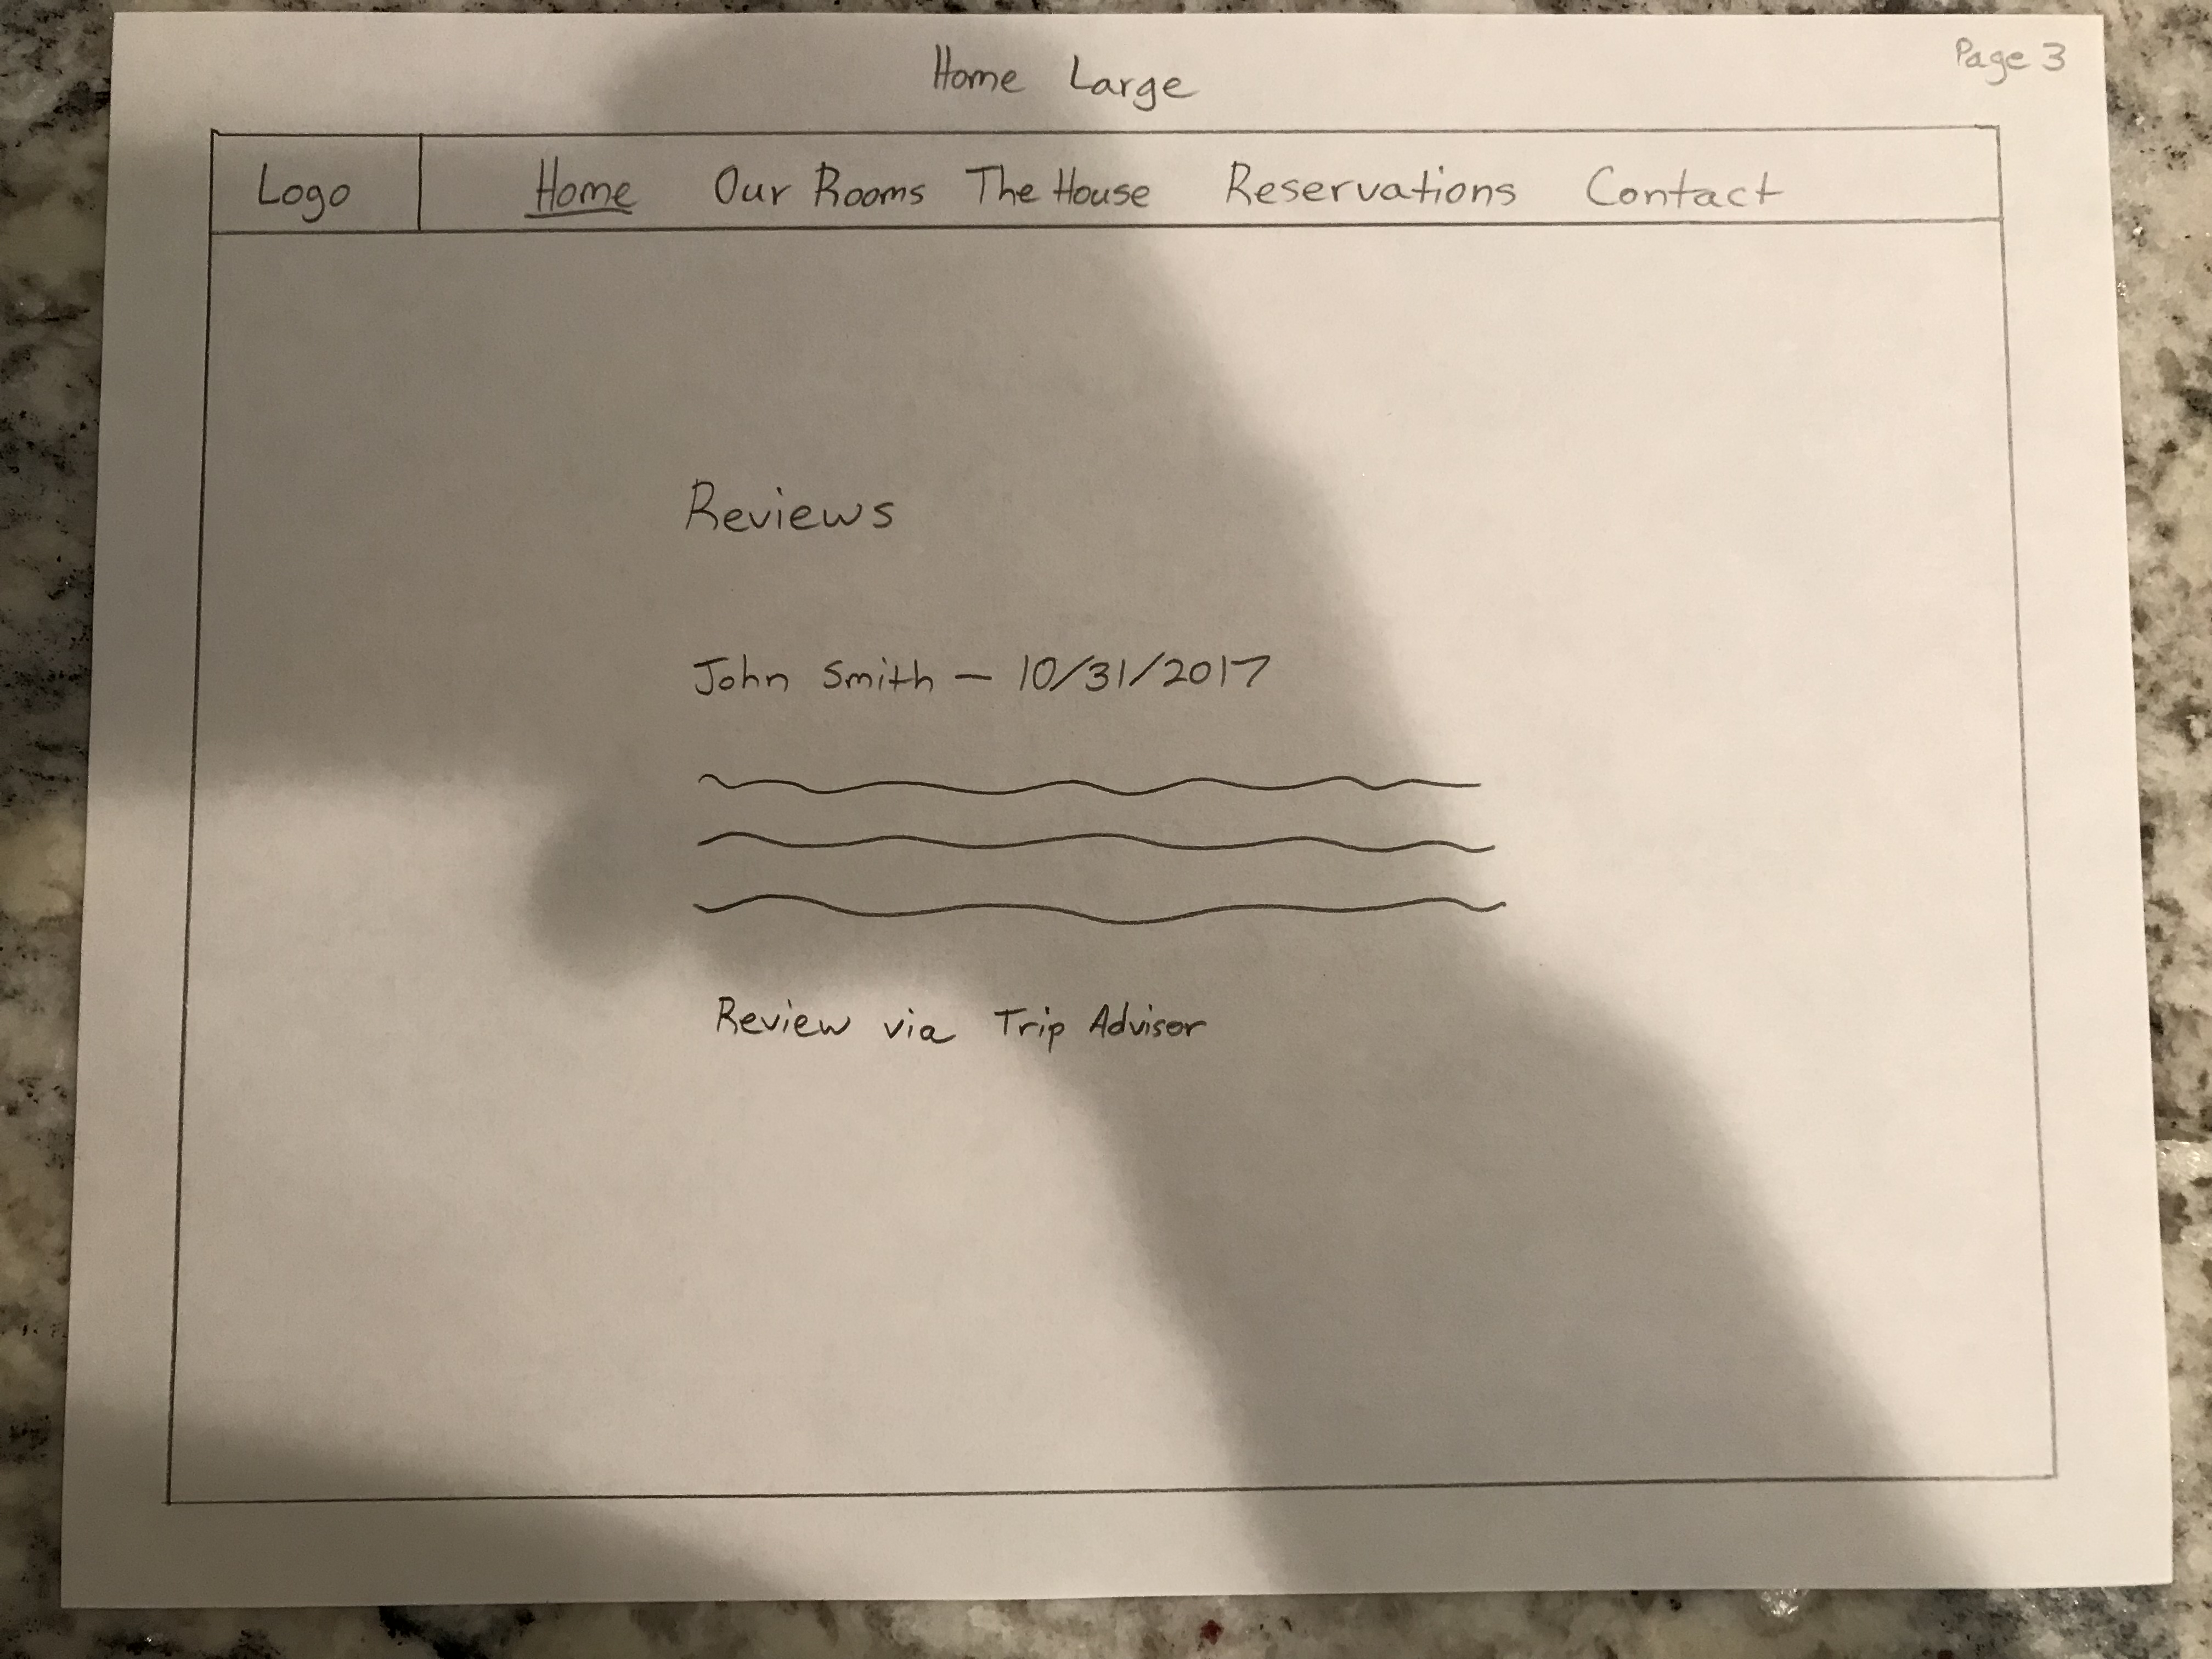 Home Large
Page 3
Logo
Home Our Rooms The House Reservations Contact
Reviews
John Smith — 10/31/2017
Review via Trip Advisor